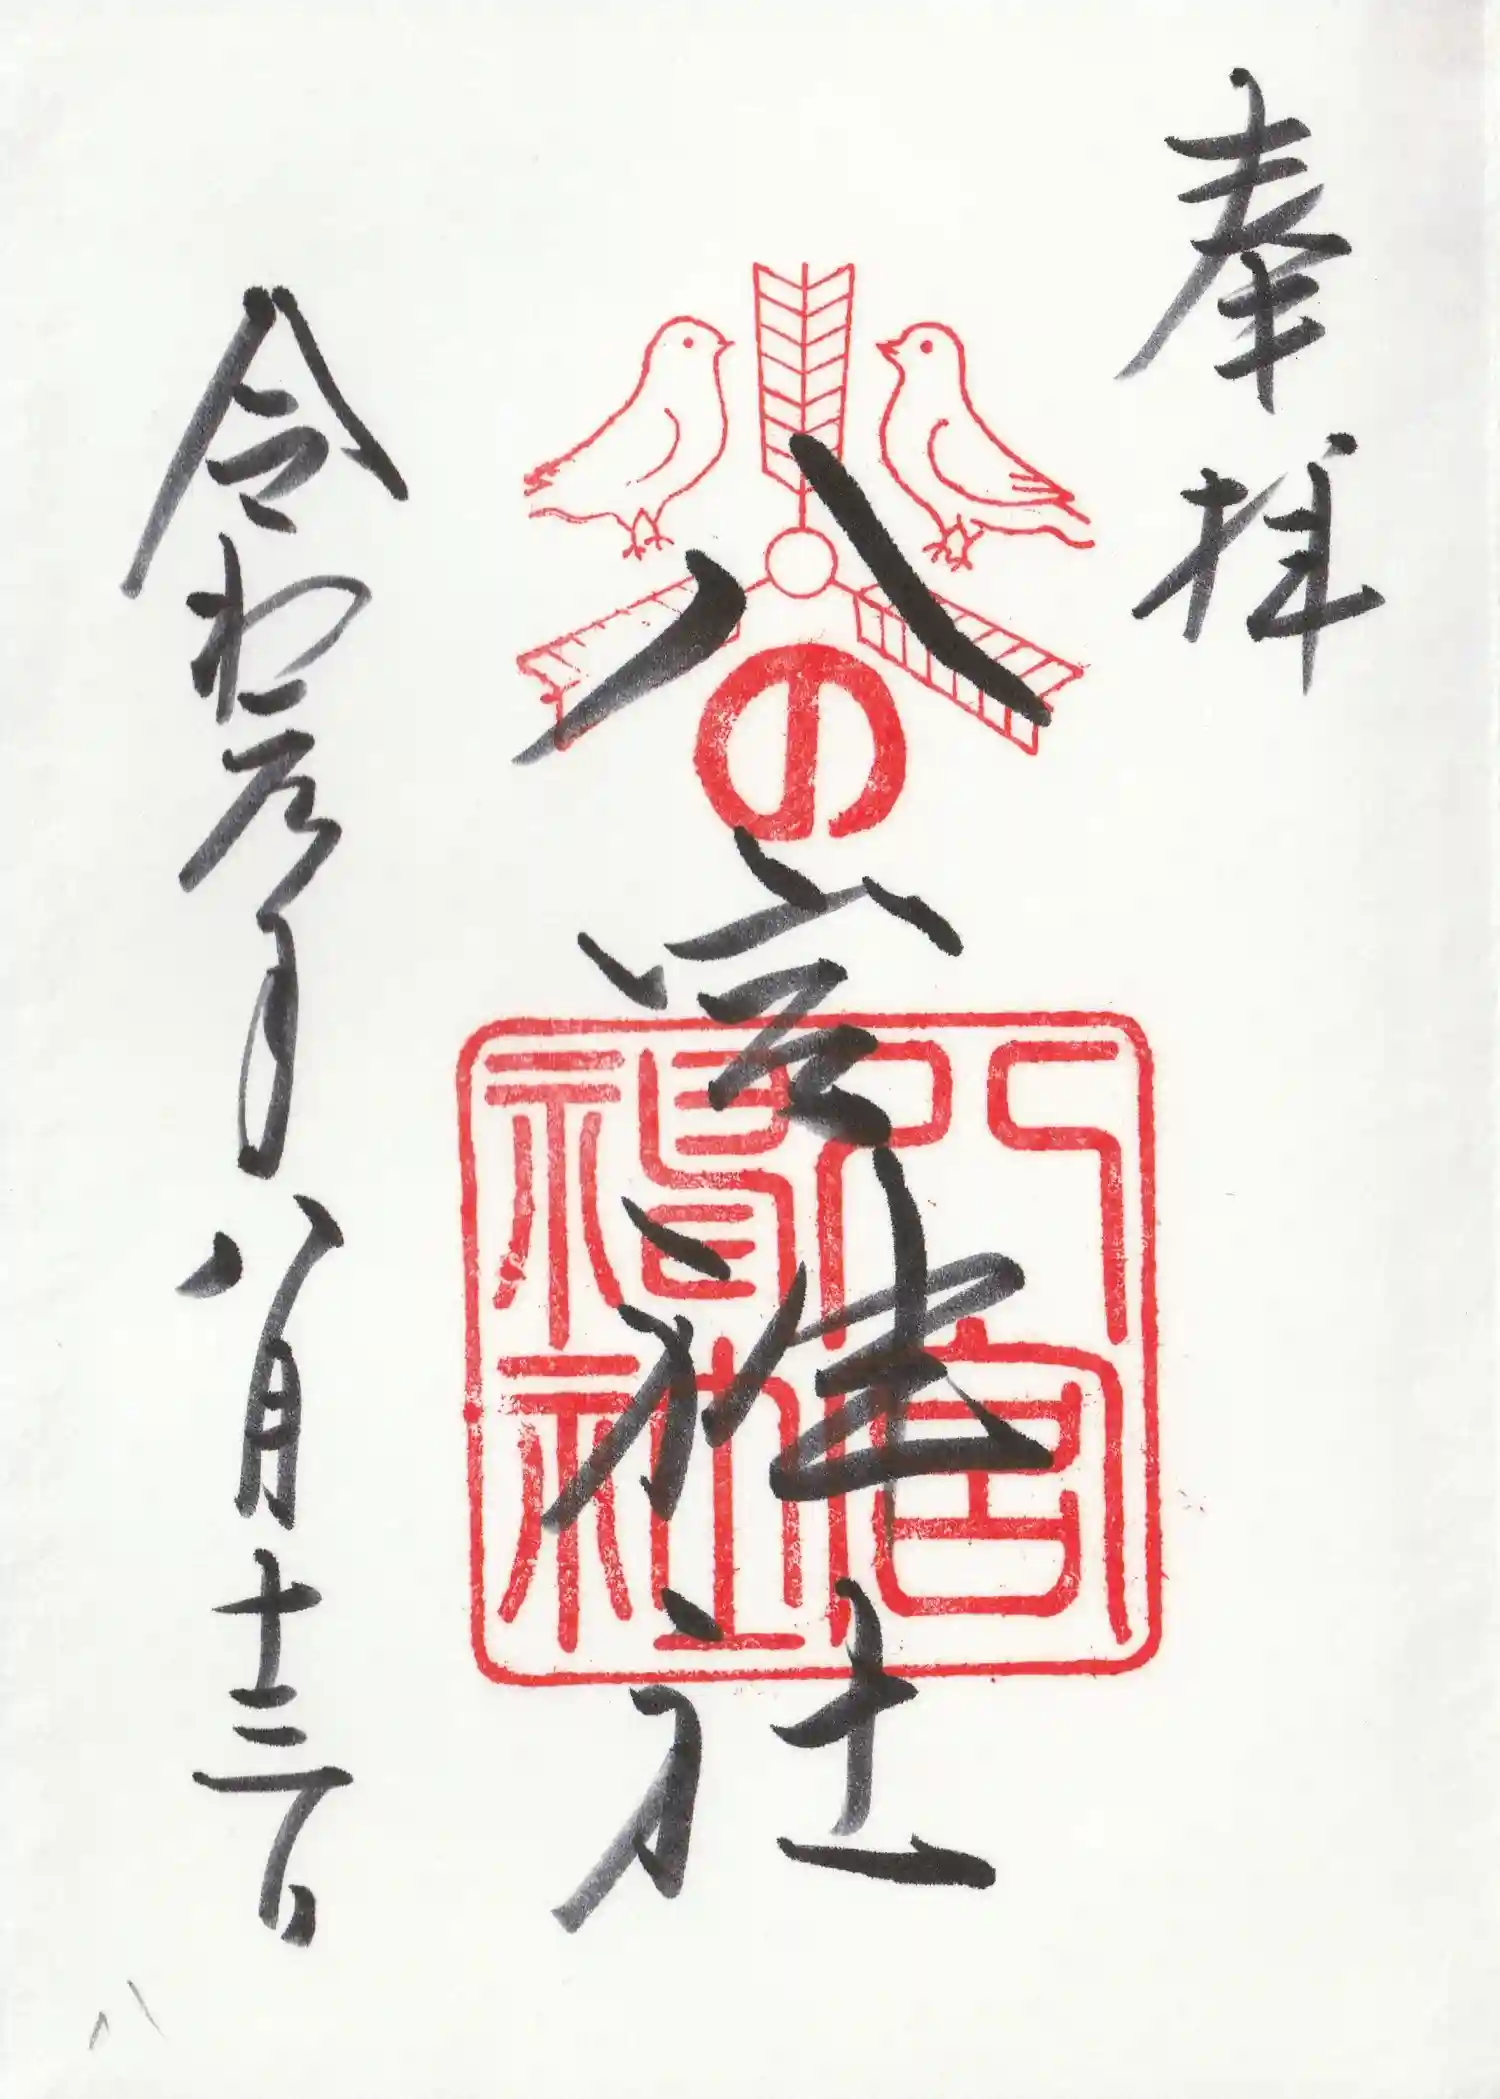 奉拝
八の宮神社
八戸宮神社
令和元年八月十三日
八